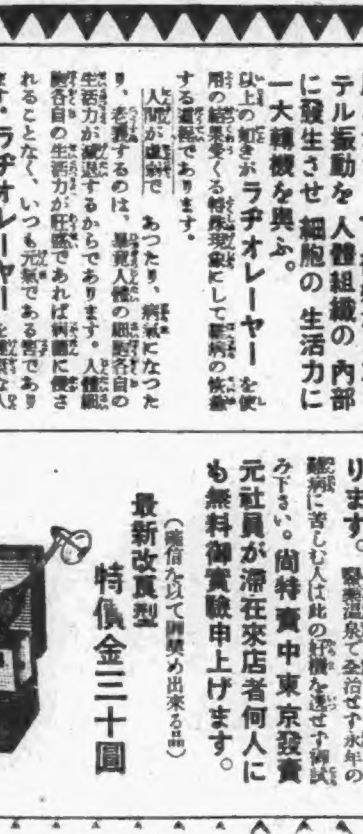 テル振動を 人體組織の 内部
に發生させ 細胞の 生活力に
一大轉機を與ふ。
以上の如きが ラヂオレーヤー を使
用の結果受くる特殊現象にして難病の恢復
する道程であります。
人間が虚弱で あつたり、病氣になつた
り、老衰するのは、畢竟人體の細胞各自の
生活力が減退するからであります。人體細
胞各自の生活力が旺盛であれば病菌に侵さ
れることなく、いつも元氣である筈であり
ます。ラヂオレーヤー
ります。醫藥温泉で全治せず永年の
難病に苦しむ人は此の好機を逸せず御試
み下さい。尚特賣中東京發賣
元社員が滯在來店者何人に
も無料御實驗申上げます。
(確信を以て御奬め出來る品)
最新改良型
特價金三十圓